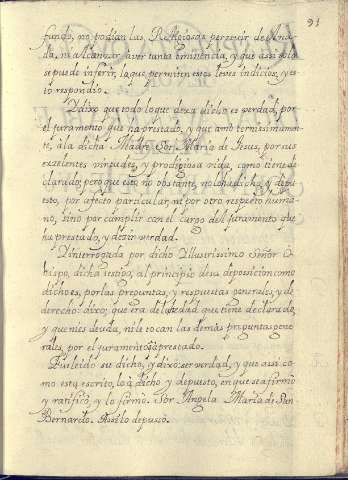 91
fundo, no podian las Religiosas persevir de Ama-
da, ni alcanzar aver tanta eminencia, y que assi solo
se puede inferir, la que permiten estos leves indicios, y es-
to respondio.
Y dixo que todo lo que dexa dicho es verdad, por
el juramento que ha prestado, y que amò ternissimamen-
te, à la dicha Madre Sor Maria de Jesus, por sus
exzelentes virtudes, y prodigiosa vida, como tiene de
clarado; pero que esto no obstante, no lo ha dicho, y depu
esto, por afecto particular, ni por otro respeto huma-
no, sino por cumplir con el cargo del juramento que
ha prestado, y dezir verdad.
Yinterrogada por dicho Illustrissimo Señor O-
bispo, dicha testigo, al principio de su deposicion como
dicho es, por las preguntas, y respuestas generales, y de
derecho: dixo; que era de la hedad que tiene declarado,
y que ni es deuda, ni le tocan las demàs preguntas gene
rales, por el juramento prestado.
Fuele leido su dicho, y dixo ser verdad, y que assi co-
mo està escrito, lo a dicho y depuesto, en que se afirmò
y ratificò, y lo firmo. Sor Angela Maria de San
Bernardo. Assi lo depuso.